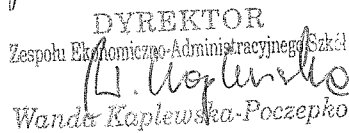 DYREKTOR
Zespołu Ekonomiczno-Administracyjnego Szkół
W. Kaplewska
Wanda Kaplewska-Poczepko